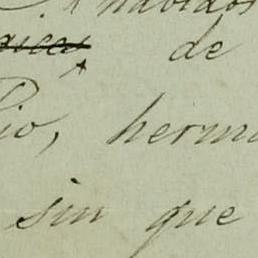 habidos
de
io, herma
sin que